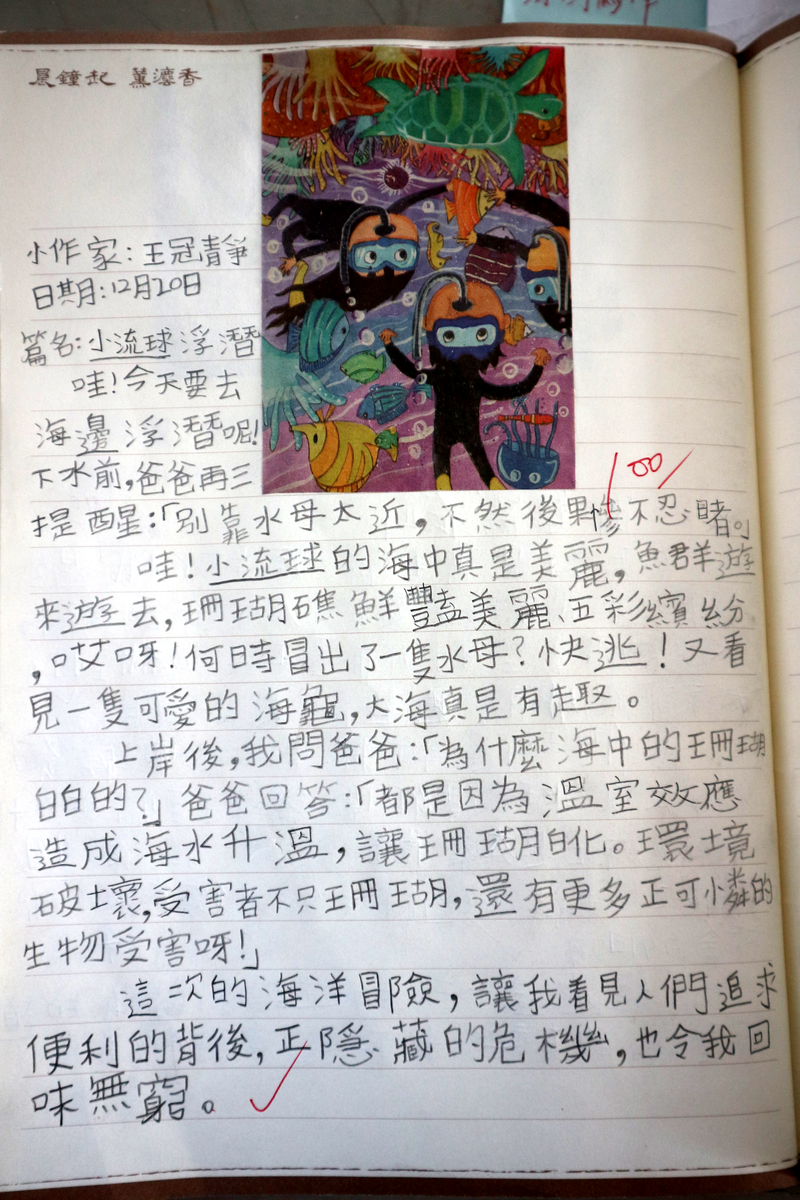 晨鐘起 薰漂香
小作家:王冠靜
日期:12月20日
篇名:小流球浮潛
哇!今天要去
海邊浮潛呢!
下水前,爸爸再三
100
提醒:「別靠水母太近,不然後果慘不忍睹。」
哇!小流球的海中真是美麗,魚群遊
來遊去,珊瑚礁鮮豔美麗、五彩繽紛
,哎呀!何時冒出了一隻水母?快逃!又看
見一隻可愛的海龜,大海真是有趣。
上岸後,我問爸爸:「為什麼海中的珊瑚
白白的?」爸爸回答:「都是因為溫室效應
造成海水升溫,讓珊瑚白化。環境
破壞,受害者不只珊瑚,還有更多正可憐的
生物受害呀!」
這次的海洋冒險,讓我看見人們追求
便利的背後,正隱藏的危機,也令我回
味無窮。